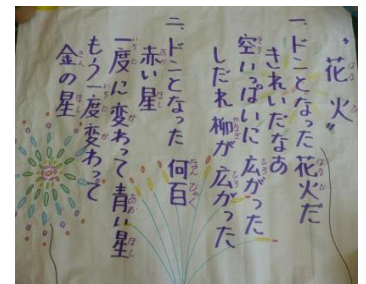 〝花火〟
一、ドンとなった花火だ
きれいだなあ
空いっぱいに広がった
しだれ柳が広がった
二、ドンとなった 何百
赤い星
一度に変わって青い星
もう一度変わって
金の星